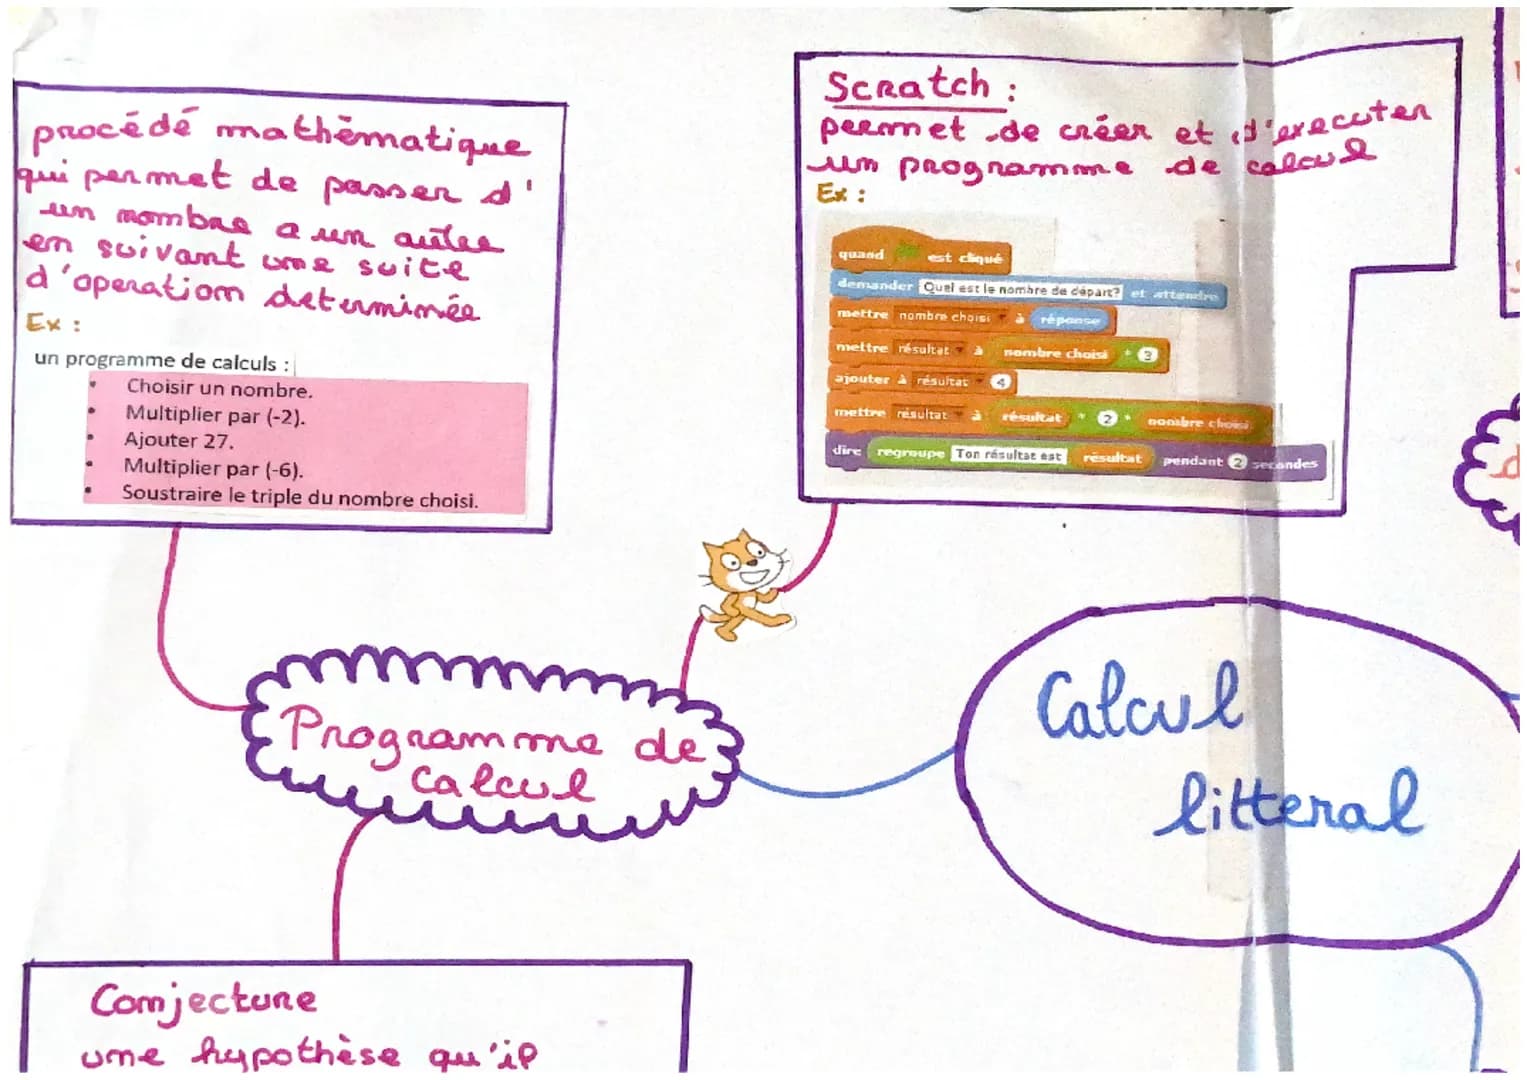 procédé mathématique
qui permet de passer d'
un nombre a un autre
en suivant une suite
d'operation determinée
Ex :
un programme de calculs :
• Choisir un nombre.
• Multiplier par (-2).
• Ajouter 27.
• Multiplier par (-6).
• Soustraire le triple du nombre choisi.
Scratch :
permet de créer et d'executer
un programme de calcul
Ex :
quand est cliqué
demander Quel est le nombre de départ? et attendre
mettre nombre choisi à réponse
mettre résultat à nombre choisi * 3
ajouter à résultat 4
mettre résultat à résultat * 2 * nombre choisi
dire regroupe Ton résultat est résultat pendant 2 secondes
Programme de
calcul
Calcul
litteral
Conjecture
une hypothèse qu'il